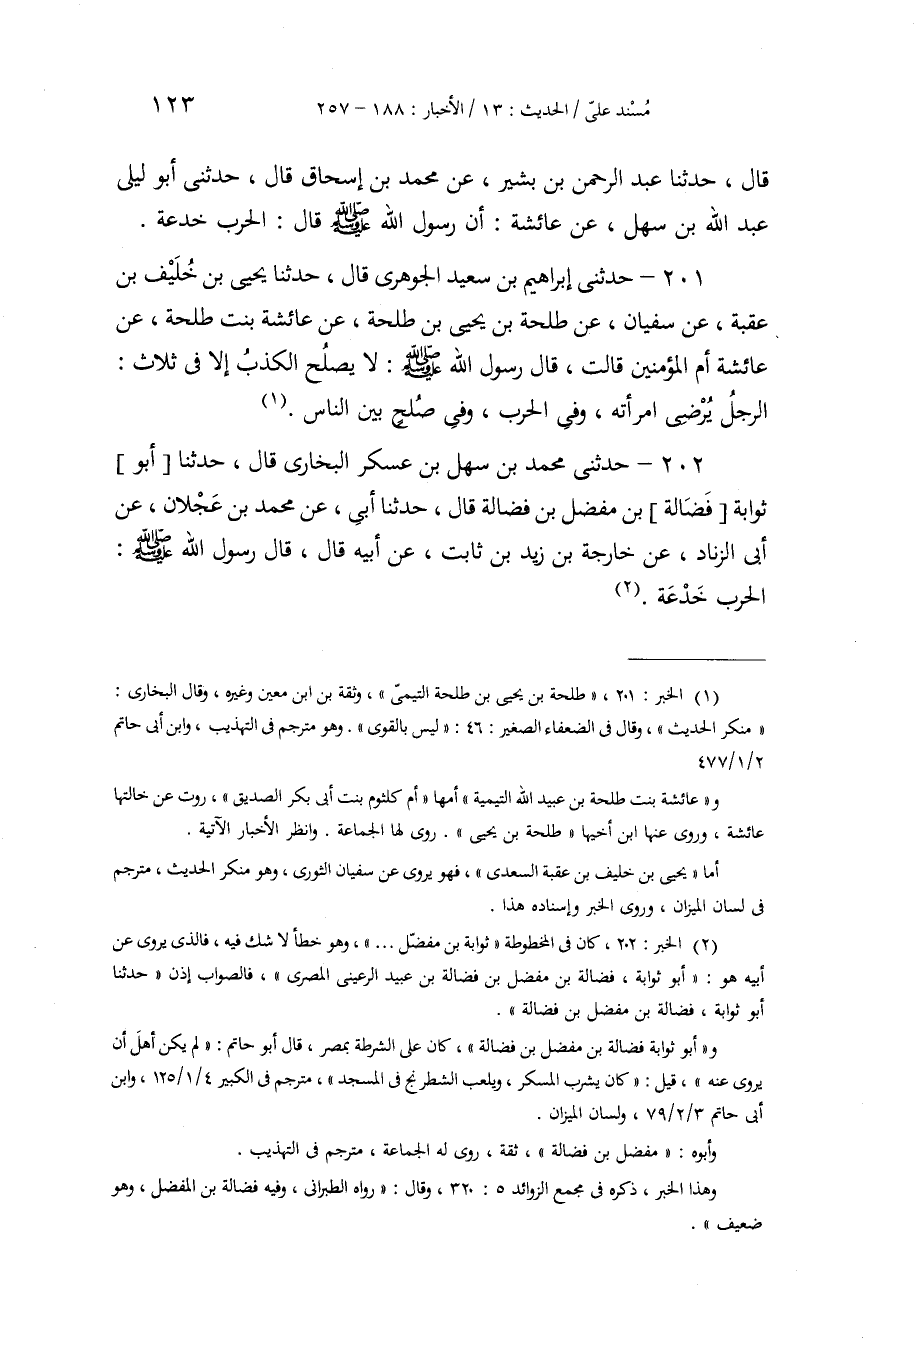 مُسْند علىّ / الحديث : ١٣ / الأخبار : ١٨٨ – ٢٥٧ ١٢٣
قال ، حدثنا عبد الرحمن بن بشير ، عن محمد بن إسحاق قال ، حدثنى أبو ليلى
عبد الله بن سهل ، عن عائشة : أن رسول الله ﷺ قال : الحرب خدعة .
٢٠١ – حدثنى إبراهيم بن سعيد الجوهرى قال ، حدثنا يحيى بن خُلَيْف بن
عقبة ، عن سفيان ، عن طلحة بن يحيى بن طلحة ، عن عائشة بنت طلحة ، عن
عائشة أم المؤمنين قالت ، قال رسول الله ﷺ : لا يصلُح الكذبُ إلا فى ثلاث :
الرجلُ يُرْضِى امرأته ، وفي الحرب ، وفي صُلحٍ بين الناس .(١)
٢٠٢ – حدثنى محمد بن سهل بن عسكر البخارى قال ، حدثنا [ أبو ]
ثوابة [ فَضَالة ] بن مفضل بن فضالة قال ، حدثنا أبي ، عن محمد بن عَجْلان ، عن
أبى الزناد ، عن خارجة بن زيد بن ثابت ، عن أبيه قال ، قال رسول الله ﷺ :
الحرب خَدْعَة .(٢)
(١) الخبر : ٢٠١ ، « طلحة بن يحيى بن طلحة التيمىّ » ، وثقة بن ابن معين وغيره ، وقال البخارى :
« منكر الحديث » ، وقال فى الضعفاء الصغير : ٤٦ : « ليس بالقوى » . وهو مترجم فى التهذيب ، وابن أبى حاتم
٤٧٧/١/٢
و« عائشة بنت طلحة بن عبيد الله التيمية » أمها « أم كلثوم بنت أبى بكر الصديق » ، روت عن خالتها
عائشة ، وروى عنها ابن أخيها « طلحة بن يحيى » . روى لها الجماعة . وانظر الأخبار الآتية .
أما « يحيى بن خليف بن عقبة السعدى » ، فهو يروى عن سفيان الثورى ، وهو منكر الحديث ، مترجم
فى لسان الميزان ، وروى الخبر وإسناده هذا .
(٢) الخبر : ٢٠٢ ، كان فى المخطوطة « ثوابة بن مفضّل ... » ، وهو خطأ لا شك فيه ، فالذى يروى عن
أبيه هو : « أبو ثوابة ، فضالة بن مفضل بن فضالة بن عبيد الرعينى المصرى » ، فالصواب إذن « حدثنا
أبو ثوابة ، فضالة بن مفضل بن فضالة » .
و« أبو ثوابة فضالة بن مفضل بن فضالة » ، كان على الشرطة بمصر ، قال أبو حاتم : « لم يكن أهلَ أن
يروى عنه » ، قيل : « كان يشرب المسكر ، ويلعب الشطرنج فى المسجد » ، مترجم فى الكبير ١٢٥/١/٤ ، وابن
أبى حاتم ٧٩/٢/٣ ، ولسان الميزان .
وأبوه : « مفضل بن فضالة » ، ثقة ، روى له الجماعة ، مترجم فى التهذيب .
وهذا الخبر ، ذكره فى مجمع الزوائد ٥ : ٣٢٠ ، وقال : « رواه الطبرانى ، وفيه فضالة بن المفضل ، وهو
ضعيف » .